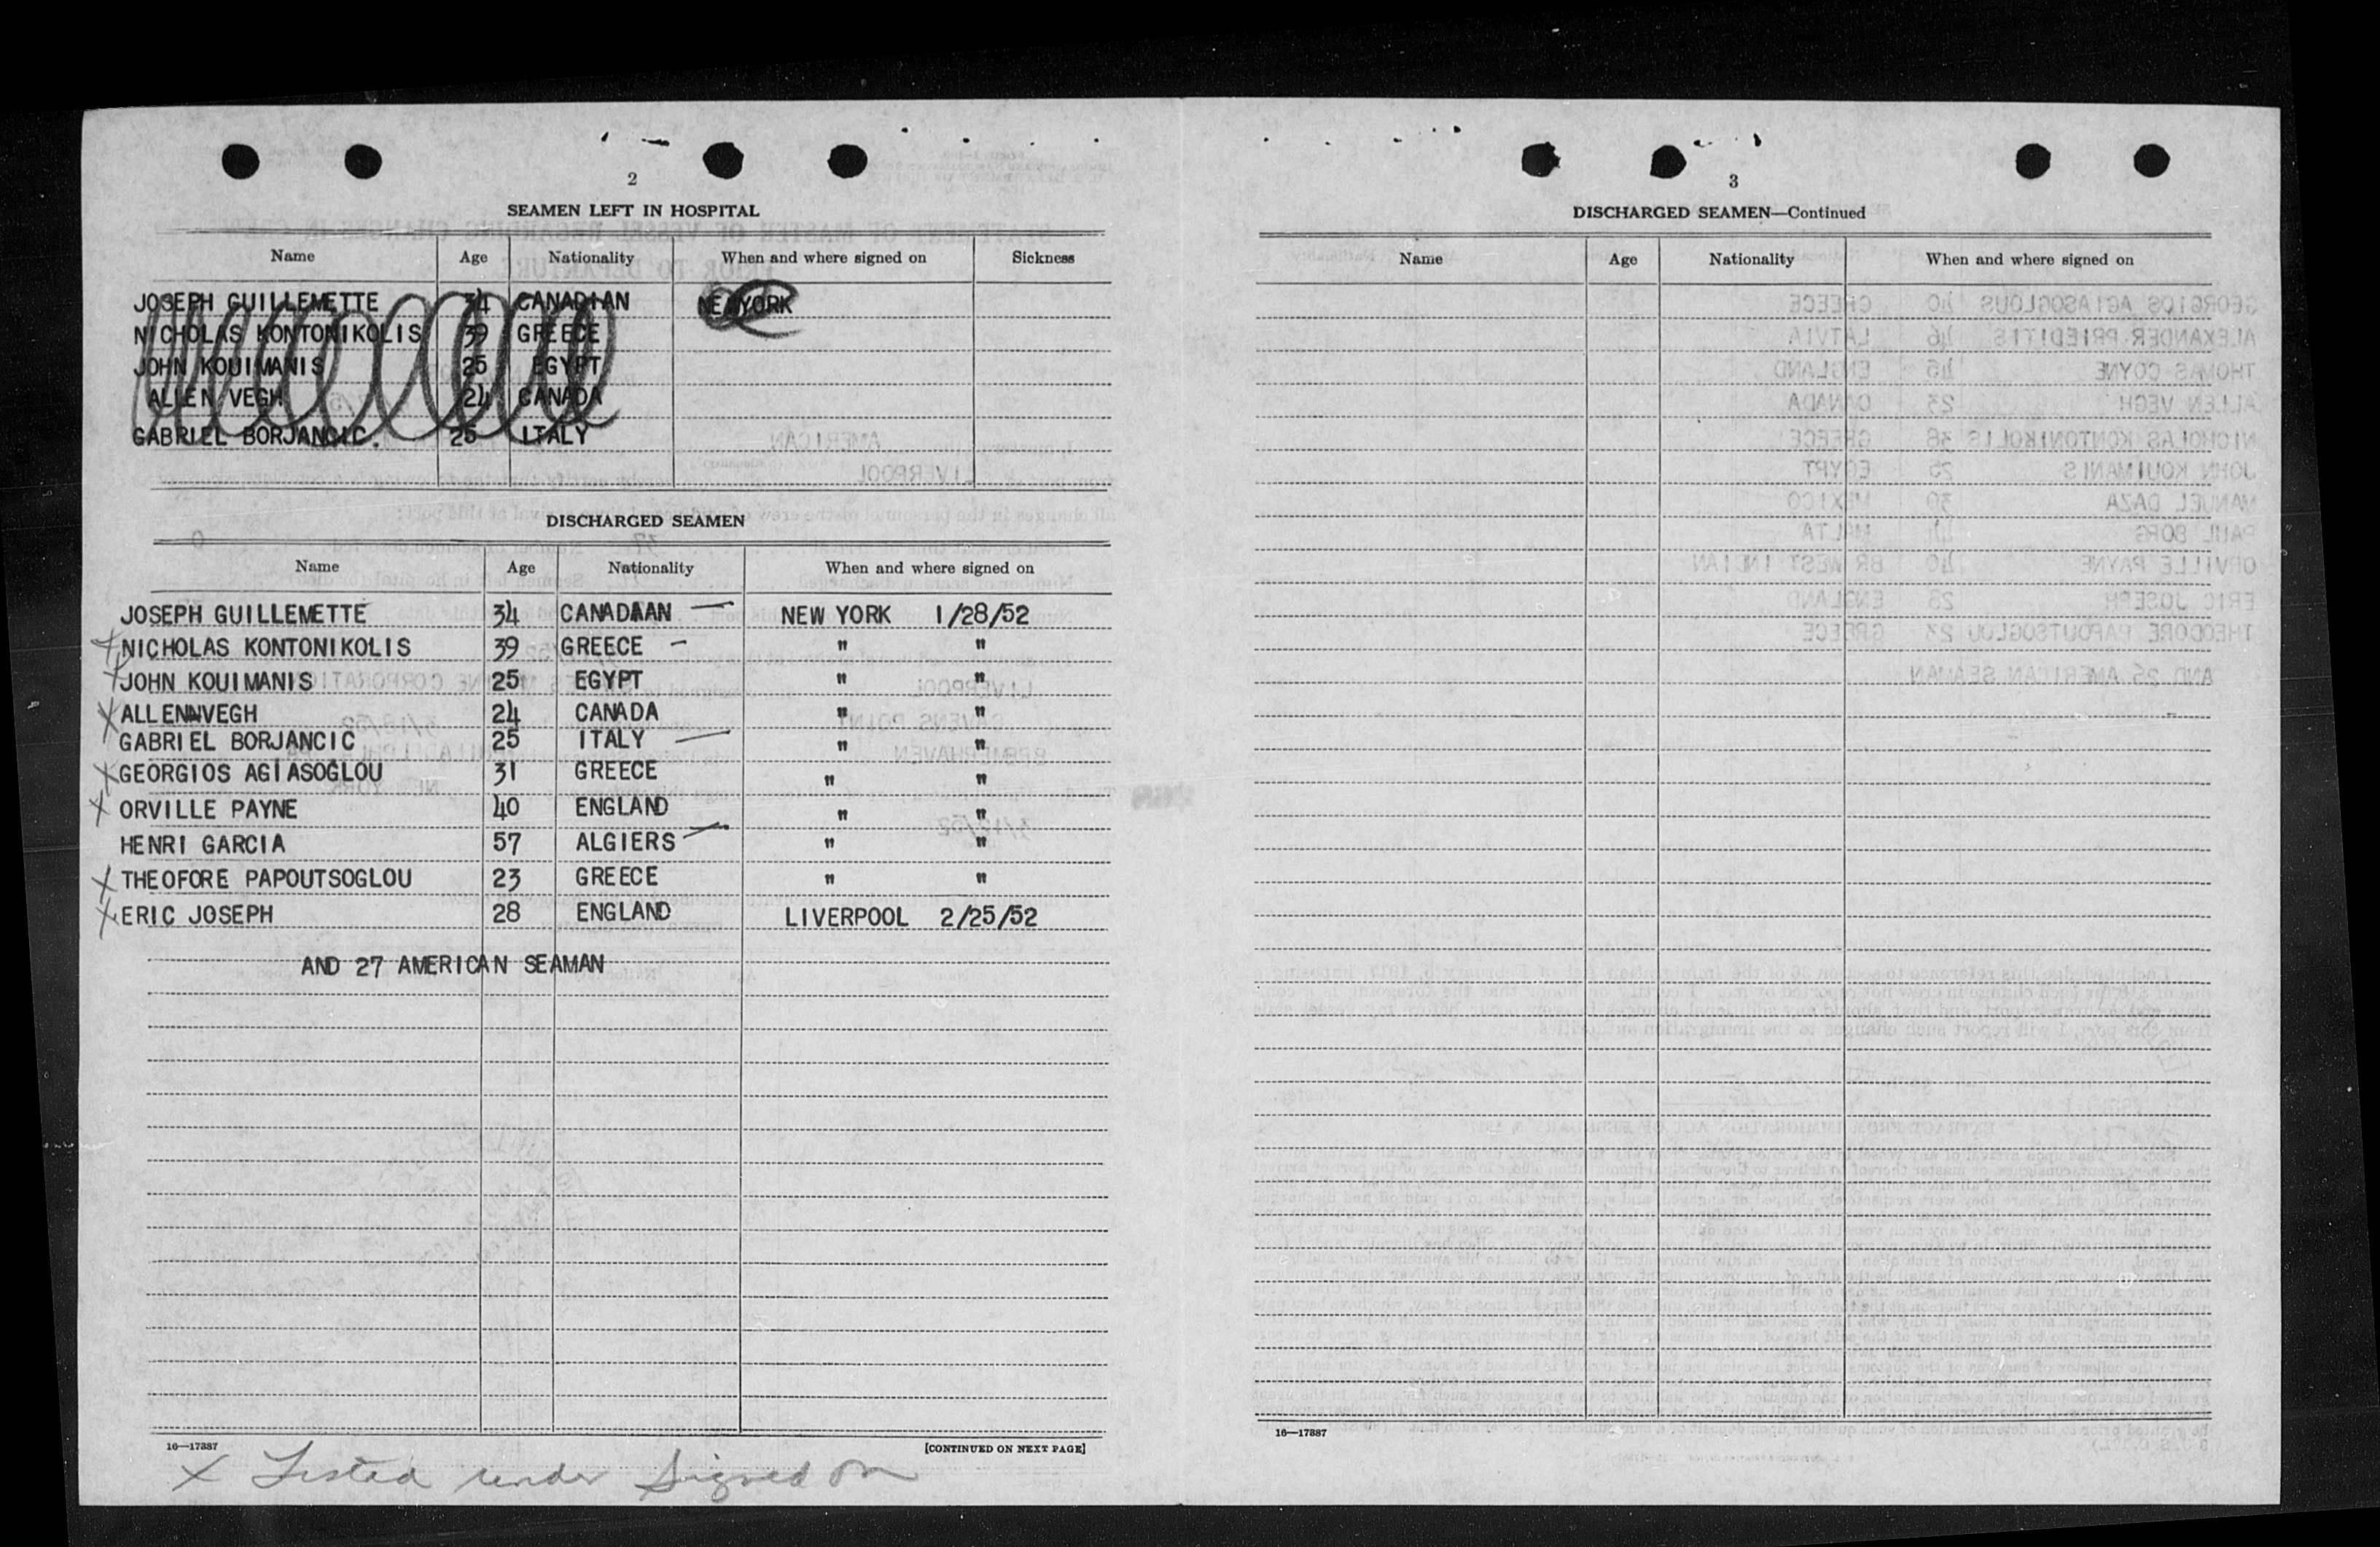 2
SEAMEN LEFT IN HOSPITAL
Name Age Nationality When and where signed on Sickness
JOSEPH GUILLEMETTE 34 CANADIAN NEW YORK
NICHOLAS KONTONIKOLIS 39 GREECE
JOHN KOUIMANIS 25 EGYPT
ALLEN VEGH 24 CANADA
GABRIEL BORJANCIC. 25 ITALY
DISCHARGED SEAMEN
Name Age Nationality When and where signed on
JOSEPH GUILLEMETTE 34 CANADAAN NEW YORK 1/28/52
X NICHOLAS KONTONIKOLIS 39 GREECE - " "
X JOHN KOUIMANIS 25 EGYPT " "
X ALLEN VEGH 24 CANADA " "
GABRIEL BORJANCIC 25 ITALY " "
X GEORGIOS AGIASOGLOU 31 GREECE " "
X ORVILLE PAYNE 40 ENGLAND " "
HENRI GARCIA 57 ALGIERS " "
X THEOFORE PAPOUTSOGLOU 23 GREECE " "
X ERIC JOSEPH 28 ENGLAND LIVERPOOL 2/25/52
AND 27 AMERICAN SEAMAN
16—17387 [CONTINUED ON NEXT PAGE]
X Listed under Signed on
3
DISCHARGED SEAMEN—Continued
Name Age Nationality When and where signed on
16—17387